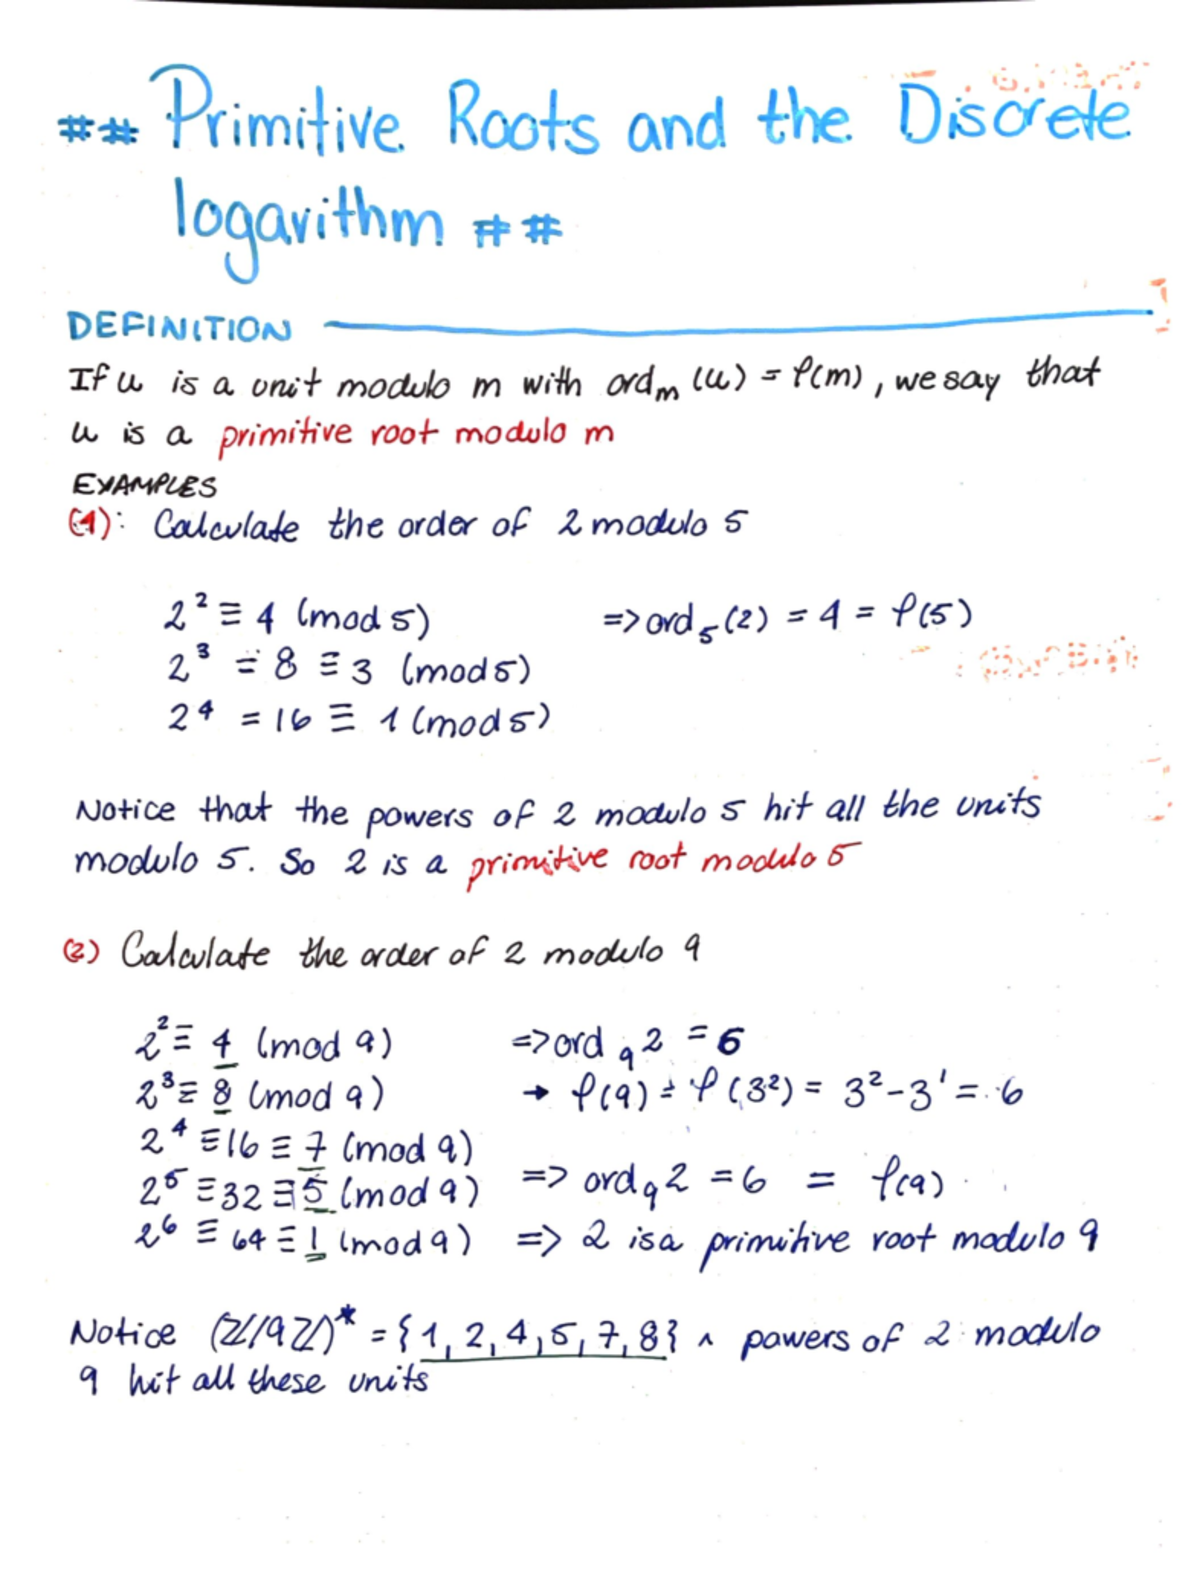 ## Primitive Roots and the Discrete
logarithm ##
DEFINITION
If u is a unit modulo m with ordₘ(u) = φ(m), we say that
u is a primitive root modulo m
EXAMPLES
(1): Calculate the order of 2 modulo 5
2² ≡ 4 (mod 5) => ord₅(2) = 4 = φ(5)
2³ = 8 ≡ 3 (mod 5)
2⁴ = 16 ≡ 1 (mod 5)
Notice that the powers of 2 modulo 5 hit all the units
modulo 5. So 2 is a primitive root modulo 5
(2) Calculate the order of 2 modulo 9
2² ≡ 4 (mod 9) => ord₉2 = 6
2³ ≡ 8 (mod 9) → φ(9) = φ(3²) = 3² - 3¹ = 6
2⁴ ≡ 16 ≡ 7 (mod 9)
2⁵ ≡ 32 ≡ 5 (mod 9) => ord₉2 = 6 = φ(9)
2⁶ ≡ 64 ≡ 1 (mod 9) => 2 is a primitive root modulo 9
Notice (ℤ/9ℤ)* = {1, 2, 4, 5, 7, 8} ∧ powers of 2 modulo
9 hit all these units